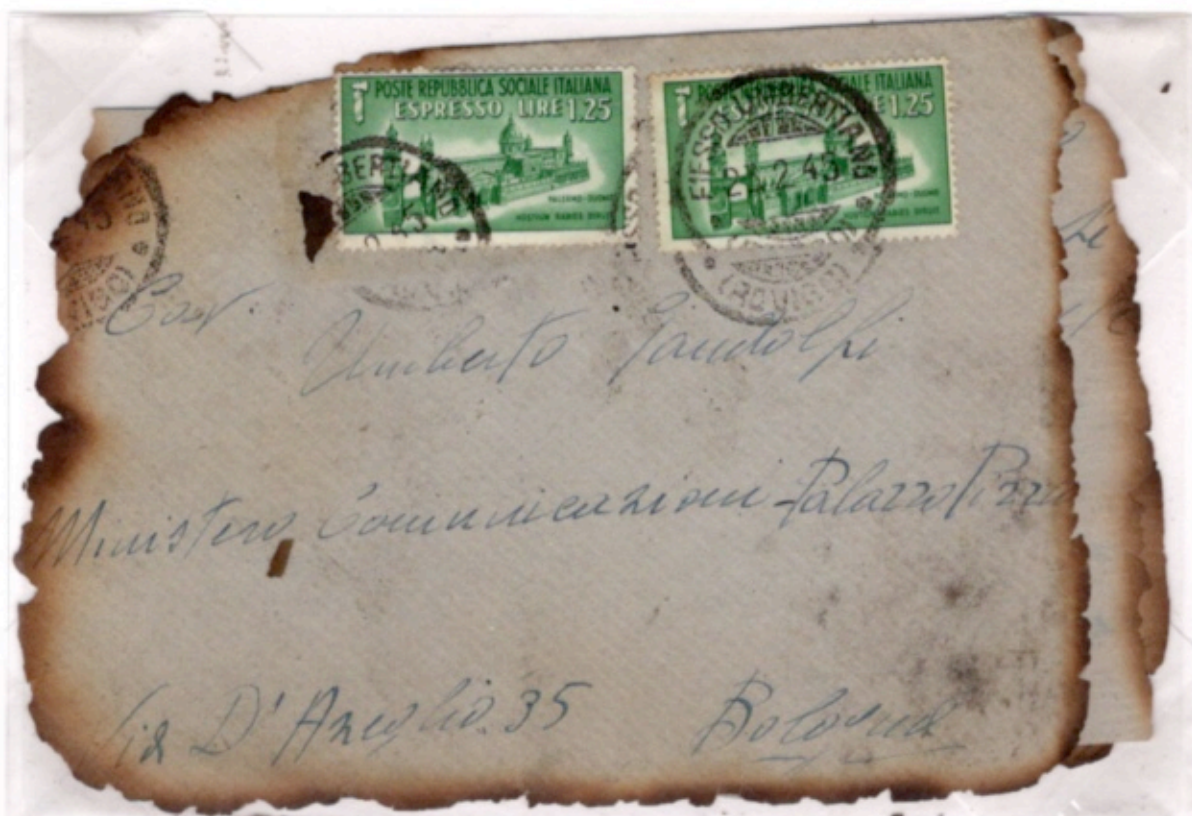 POSTE REPUBBLICA SOCIALE ITALIANA
ESPRESSO LIRE 1.25
PALERMO-DUOMO
HOSTIUM RABIES DIRUIT
POSTE REPUBBLICA SOCIALE ITALIANA
ESPRESSO LIRE 1.25
FIESSO UMBERTIANO
2.45
(ROVIGO)
Cav.
Umberto Gandolfi
Ministero Comunicazioni - Palazzo
Via D'Azeglio. 35 Bologna